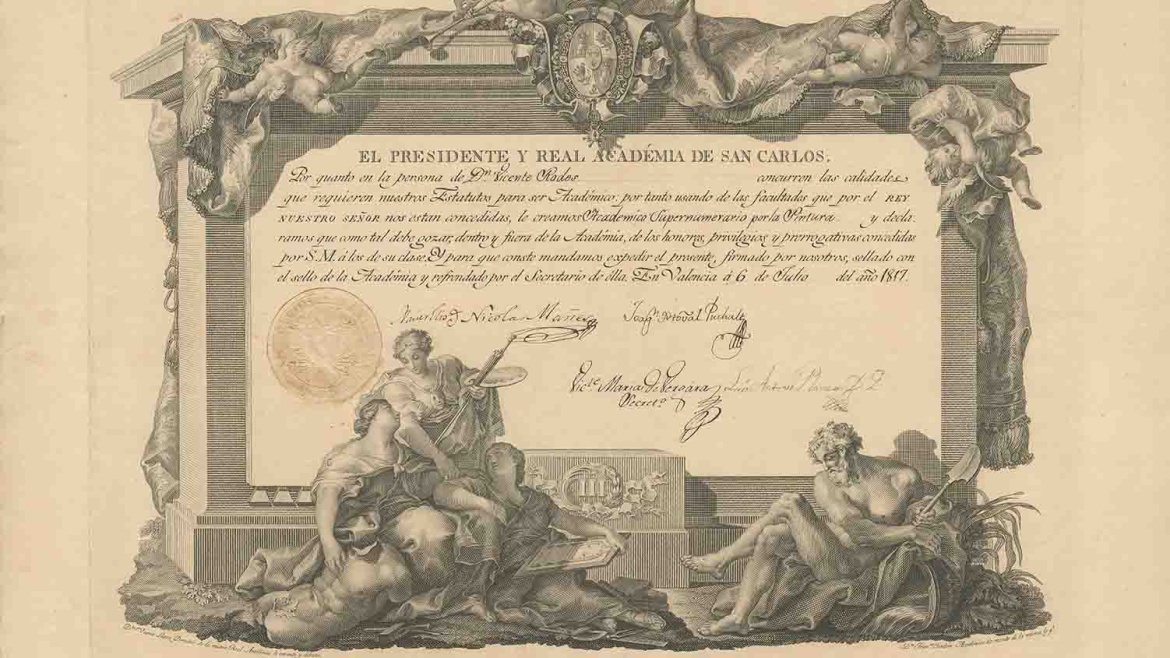 EL PRESIDENTE Y REAL ACADÉMIA DE SAN CARLOS.
Por quanto en la persona de Dⁿ. Vicente Rodes concurren las calidades
que requieren nuestros Estatutos para ser Académico; por tanto usando de las facultades que por el REY
NUESTRO SEÑOR nos estan concedidas, le creamos Academico Supernumerario por la Pintura y decla
ramos que como tal debe gozar, dentro y fuera de la Académia, de los honores, privilegios y prerrogativas concedidas
por S.M. á los de su clase. Y para que conste mandamos expedir el presente, firmado por nosotros, sellado con
el sello de la Académia y refrendado por el Secretario de ella. En Valencia á 6 de Julio del año 1817.
Nicola Mañes
Vicᵗᵉ Maria de Vergara
Secretº